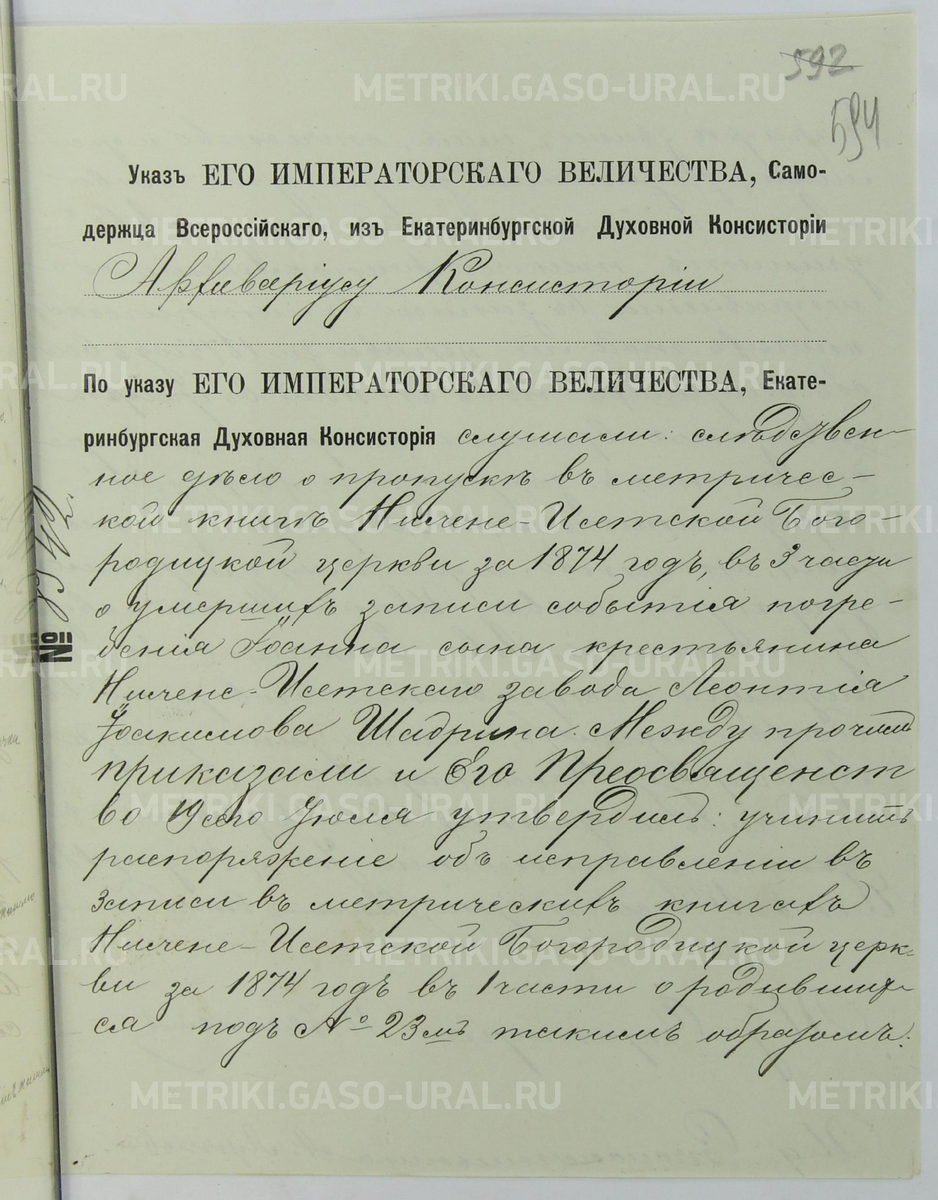 592
594
Указъ ЕГО ИМПЕРАТОРСКАГО ВЕЛИЧЕСТВА, Само-
держца Всероссійскаго, изъ Екатеринбургской Духовной Консисторіи
Архиваріусу Консисторіи
По указу ЕГО ИМПЕРАТОРСКАГО ВЕЛИЧЕСТВА, Екате-
ринбургская Духовная Консисторія слушали: слѣдствен-
ное дѣло о пропускѣ въ метричес-
кой книгѣ Нижне-Исетской Бого-
родицкой церкви за 1874 годъ, въ 3 части
о умершихъ записи событія погре-
бенія Іоанна сына крестьянина
Нижне-Исетскаго завода Леонтія
Іоакимова Шадрина. Между прочимъ
приказали и Его Преосвященст
во 19 сего Іюля утвердилъ: учинить
распоряженіе объ исправленіи въ
записи въ метрическихъ книгахъ
Нижне-Исетской Богородицкой церк-
ви за 1874 годъ въ 1 части о родивших-
ся подъ № 23мъ такимъ образомъ:
№
METRIKI.GASO-URAL.RU